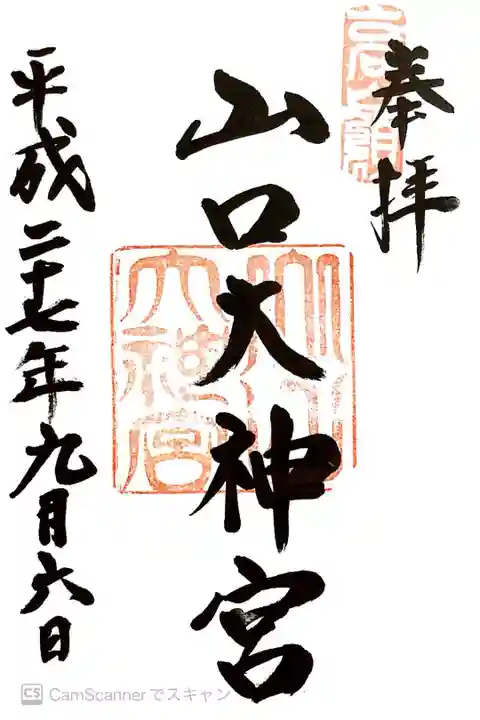 奉拝
山口大神宮
平成二十七年九月六日
山口
大神宮
CS CamScannerでスキャン